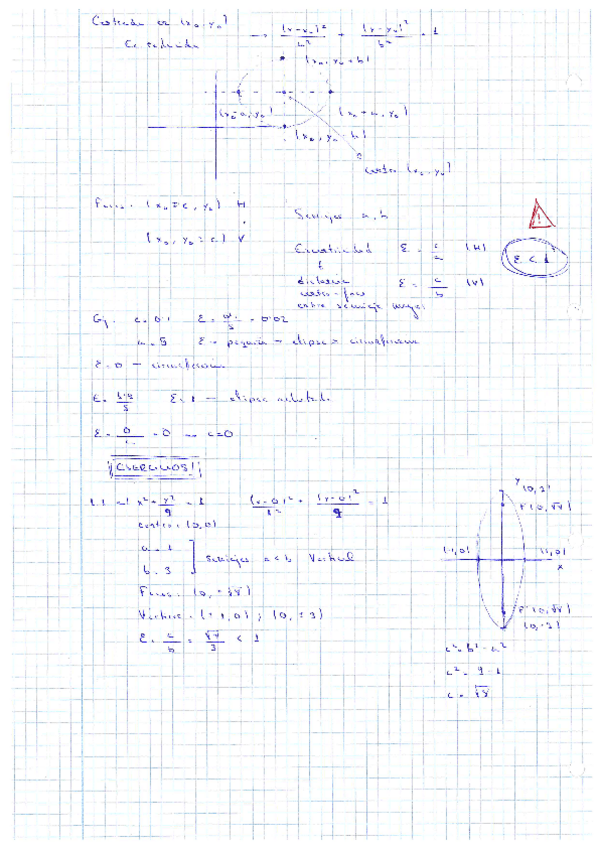 Centrada en (x₀, y₀)
Ec reducida → (x-x₀)²/a² + (y-y₀)²/b² = 1
(x₀, y₀+b)
(x₀-a, y₀)
(x₀+a, y₀)
(x₀, y₀-b)
centro (x₀, y₀)
Focos. (x₀ ∓ c, y₀) H
(x₀, y₀ ∓ c) V
Semiejes a, b
!
Excentricidad ε = c/a (H)
ε < 1
distancia
centro-foco
entre semieje mayor
ε = c/b (V)
Ej. c = 0'1 ε = 0'1/5 = 0'02
a = 5 ε = pequeña → elipse ≈ circunferencia
ε = 0 → circunferencia
ε = 4'9/5 ε ≈ 1 → elipse achatada
c=0
EJERCICIOS!
1.1 a) x² + y²/9 = 1 (x-0)²/1² + (y-0)²/9 = 1
centro: (0,0)
a = 1
b = 3
semiejes a<b Vertical
Focos. (0, ±√8)
Vértices. (±1,0) ; (0, ±3)
ε = c/b = √8/3 < 1
Y
(0,3)
F(0,√8)
(-1,0)
(1,0)
X
(0,-3)
c² = b² - a²
c² = 9 - 1
c = √8